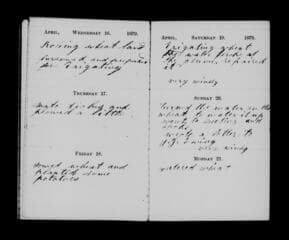 April, Wednesday 16. 1879.
wheat land
harrowed and prepared
for irrigating
Thursday 17.
made and
plowed a little
Friday 18.
sowed wheat and
planted some
potatoes
April, Saturday 19. 1879.
Irrigating wheat
the water broke at
the repaired
it.
very windy
Sunday 20.
turned the water on the
wheat to water it up
went to meeting and
spoke
wrote a letter to
very windy
Monday 21.
watered wheat